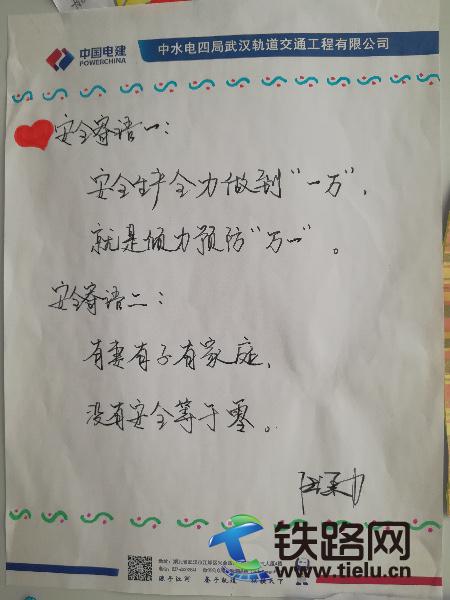 中国电建
POWERCHINA
中水电四局武汉轨道交通工程有限公司
安全寄语一：
安全生产全力做到“一万”，
就是倾力预防“万一”。
安全寄语二：
有妻有子有家庭，
没有安全等于零。
源于江河
铁路网
www.tielu.cn